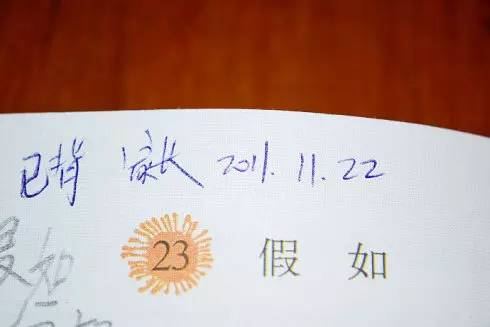 已背 家长 2011.11.22
23 假如